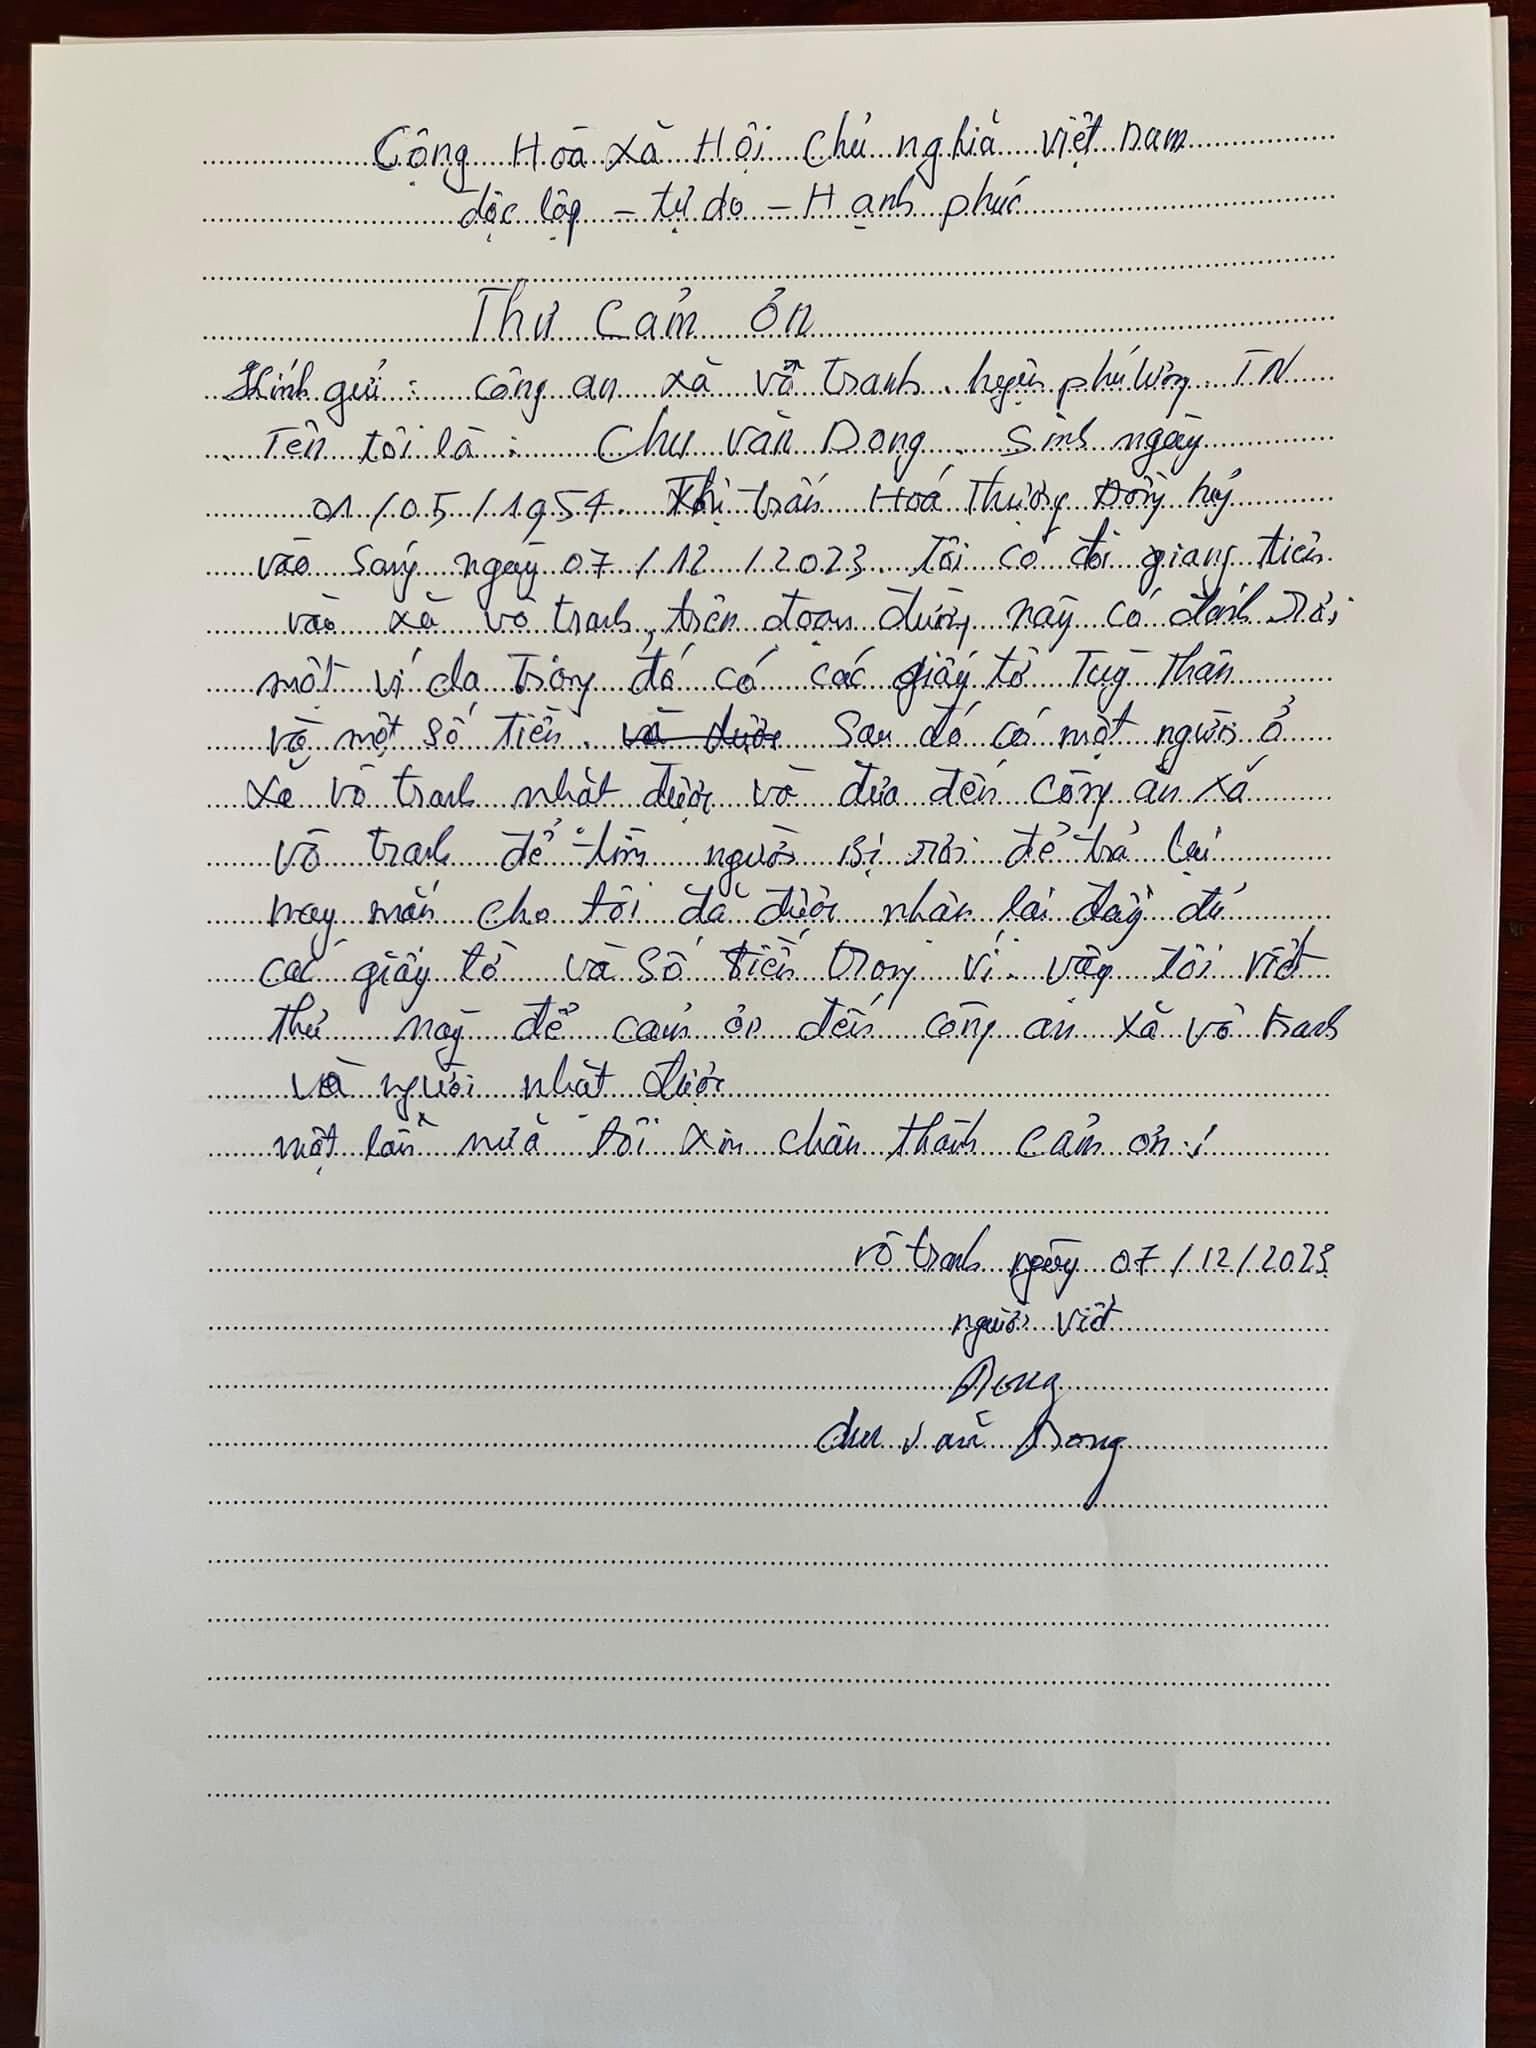 Cộng Hoà xà Hội chủ nghià việt nam
độc lập - tự do - Hạnh phúc
Thư cảm ỏn
Kính gửi : công an xà vỗ tranh. huyện phú lương. TN
Tên tôi là : Chu văn Dong. Sinh ngày
01/05/1954. Thị trấn Hoá Thượng Đồng hỷ
vào sáng ngày 07/12/2023. Tôi có đi giang tiên
vào xà vô tranh, trên đoạn đường này có đánh rơi
một ví da trong đó có các giấy tờ Tuỳ Thân
và một số tiền. và được sau đó có một người ở
xã vô tranh nhặt được và đưa đến công an xã
vô tranh để tìm người bị rơi để trả lại
may mắn cho tôi đã được nhận lại đầy đủ
các giấy tờ và số tiền trong ví. vậy tôi viết
thư này để cảm ơn đến công an xã vô tranh
và người nhặt được
một lần nữa tôi xin chân thành cảm ơn.!
vô tranh ngày 07/12/2023
người viết
Dong
chu văn Dong